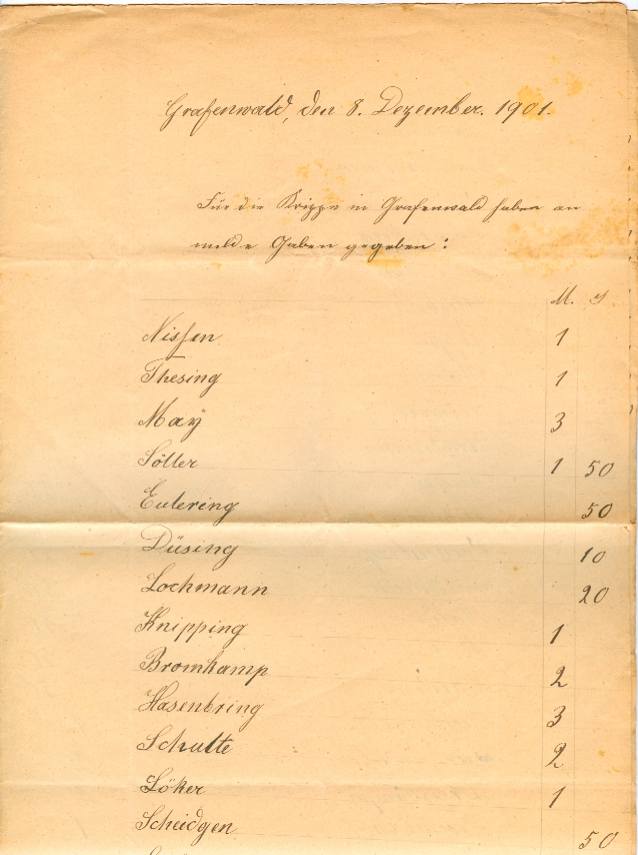 Grafenwald, den 8. Dezember. 1901.
Für die Krippe in Grafenwald haben an
milde Gaben gegeben:
M. ₰
Nissen 1
Thesing 1
Maÿ 3
Söller 1 50
Eulering 50
Düsing 10
Lochmann 20
Knipping 1
Bromkamp 2
Hasenbring 3
Schulte 2
Löker 1
Scheidgen 50